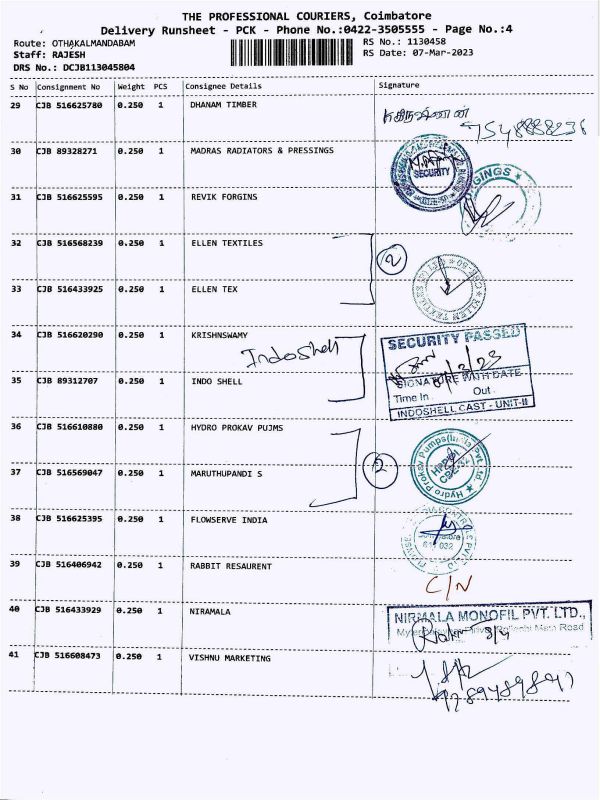 THE PROFESSIONAL COURIERS, Coimbatore
Delivery Runsheet - PCK - Phone No.:0422-3505555 - Page No.:4
Route: OTHAKALMANDABAM
RS No.: 1130458
Staff: RAJESH
RS Date: 07-Mar-2023
DRS No.: DCJB113045804
S No Consignment No Weight PCS Consignee Details Signature
29 CJB 516625780 0.250 1 DHANAM TIMBER
30 CJB 89328271 0.250 1 MADRAS RADIATORS & PRESSINGS
SECURITY
31 CJB 516625595 0.250 1 REVIK FORGINS
32 CJB 516568239 0.250 1 ELLEN TEXTILES
2
33 CJB 516433925 0.250 1 ELLEN TEX
34 CJB 516620290 0.250 1 KRISHNSWAMY
IndoShell
SECURITY PASSED
SIGNATURE WITH DATE
Time In Out
INDOSHELL CAST - UNIT-II
35 CJB 89312707 0.250 1 INDO SHELL
36 CJB 516610880 0.250 1 HYDRO PROKAV PUJMS
Hydro Prokav Pumps(India)Pvt.Ltd.
2
37 CJB 516569047 0.250 1 MARUTHUPANDI S
38 CJB 516625395 0.250 1 FLOWSERVE INDIA
39 CJB 516406942 0.250 1 RABBIT RESAURENT
C/N
40 CJB 516433929 0.250 1 NIRAMALA
NIRMALA MONOFIL PVT. LTD.,
Main Road
41 CJB 516608473 0.250 1 VISHNU MARKETING